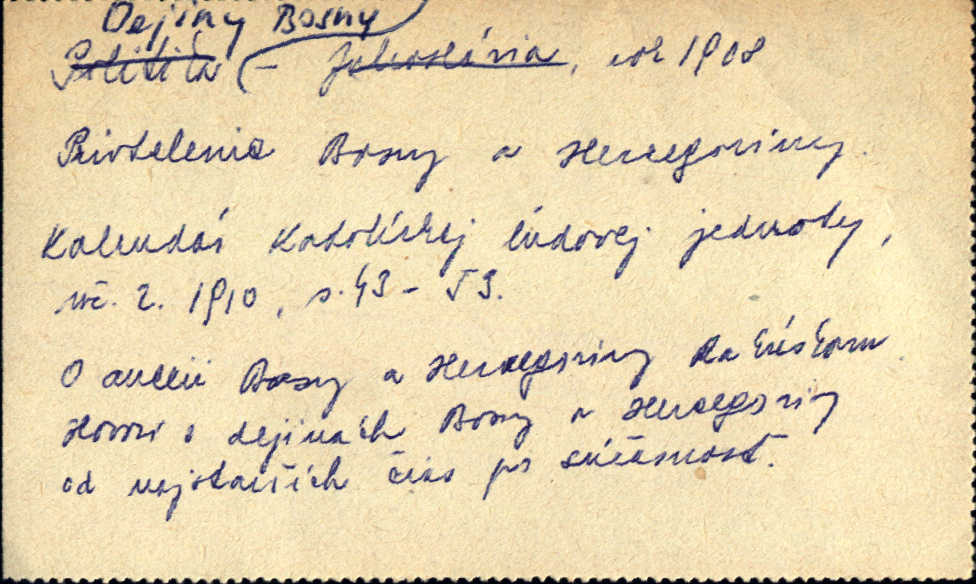 Dejiny Bosny
Politika – Juhoslávia, rok 1908
Privtelenie Bosny a Hercegoviny.
Kalendár Katolíckej ľudovej jednoty,
roč. 2. 1910, s. 43 - 53.
O anexii Bosny a Hercegoviny Rakúskom.
Hovorí o dejinách Bosny a Hercegoviny
od najstarších čias po súčasnosť.